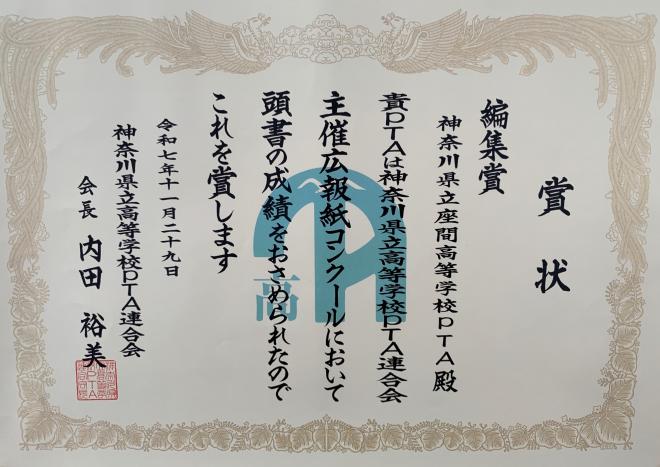 賞状
編集賞
神奈川県立座間高等学校PTA殿
貴PTAは神奈川県立高等学校PTA連合会
主催広報紙コンクールにおいて
頭書の成績をおさめられたので
これを賞します
令和七年十一月二十九日
神奈川県立高等学校PTA連合会
会長 内田 裕美
高
PTA